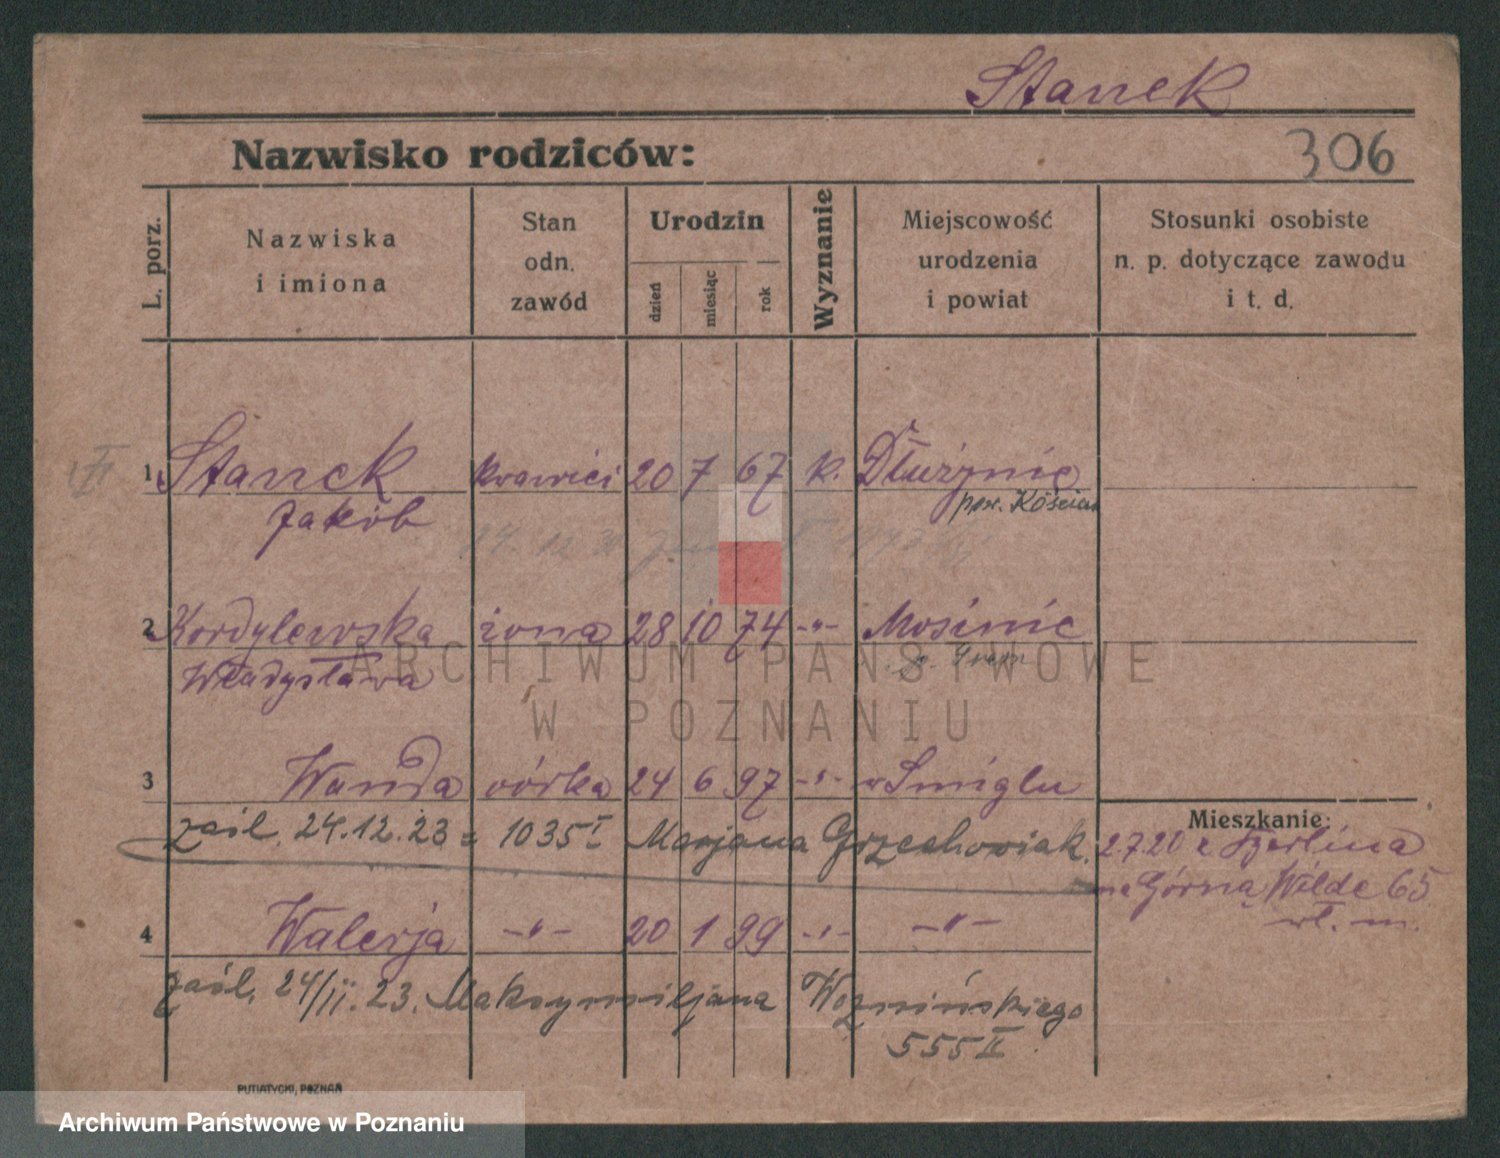 Stanek
Nazwisko rodziców:
306
L. porz.
Nazwiska
i imiona
Stan
odn.
zawód
Urodzin
dzień
miesiąc
rok
Wyznanie
Miejscowość
urodzenia
i powiat
Stosunki osobiste
n. p. dotyczące zawodu
i t. d.
1 Stanek krawiec 20 7 67 k. Dłużynie
Jakób pow. Kościan
2 Kordylewska żona 28 10 74 -"- Mosinie
Władysława
3 Wanda córka 24 6 97 -"- w Śmiglu
zaśl. 24.12.23 = 1035 I Marjana Grzechowiak.
Mieszkanie:
27 20 z Berlina
na Górną Wildę 65
4 Walerja -"- 20 1 99 -"- -"-
zaśl. 24/II.23. Maksymiljana Wozmińskiego
555 II
PUTIATYCKI, POZNAŃ
ARCHIWUM PAŃSTWOWE
W POZNANIU
Archiwum Państwowe w Poznaniu